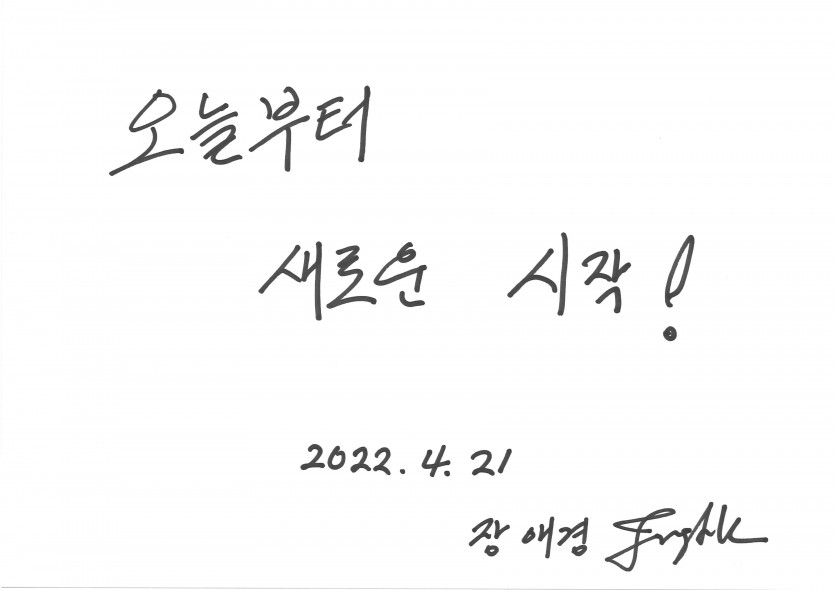 오늘부터
새로운 시작!
2022. 4. 21
장애경